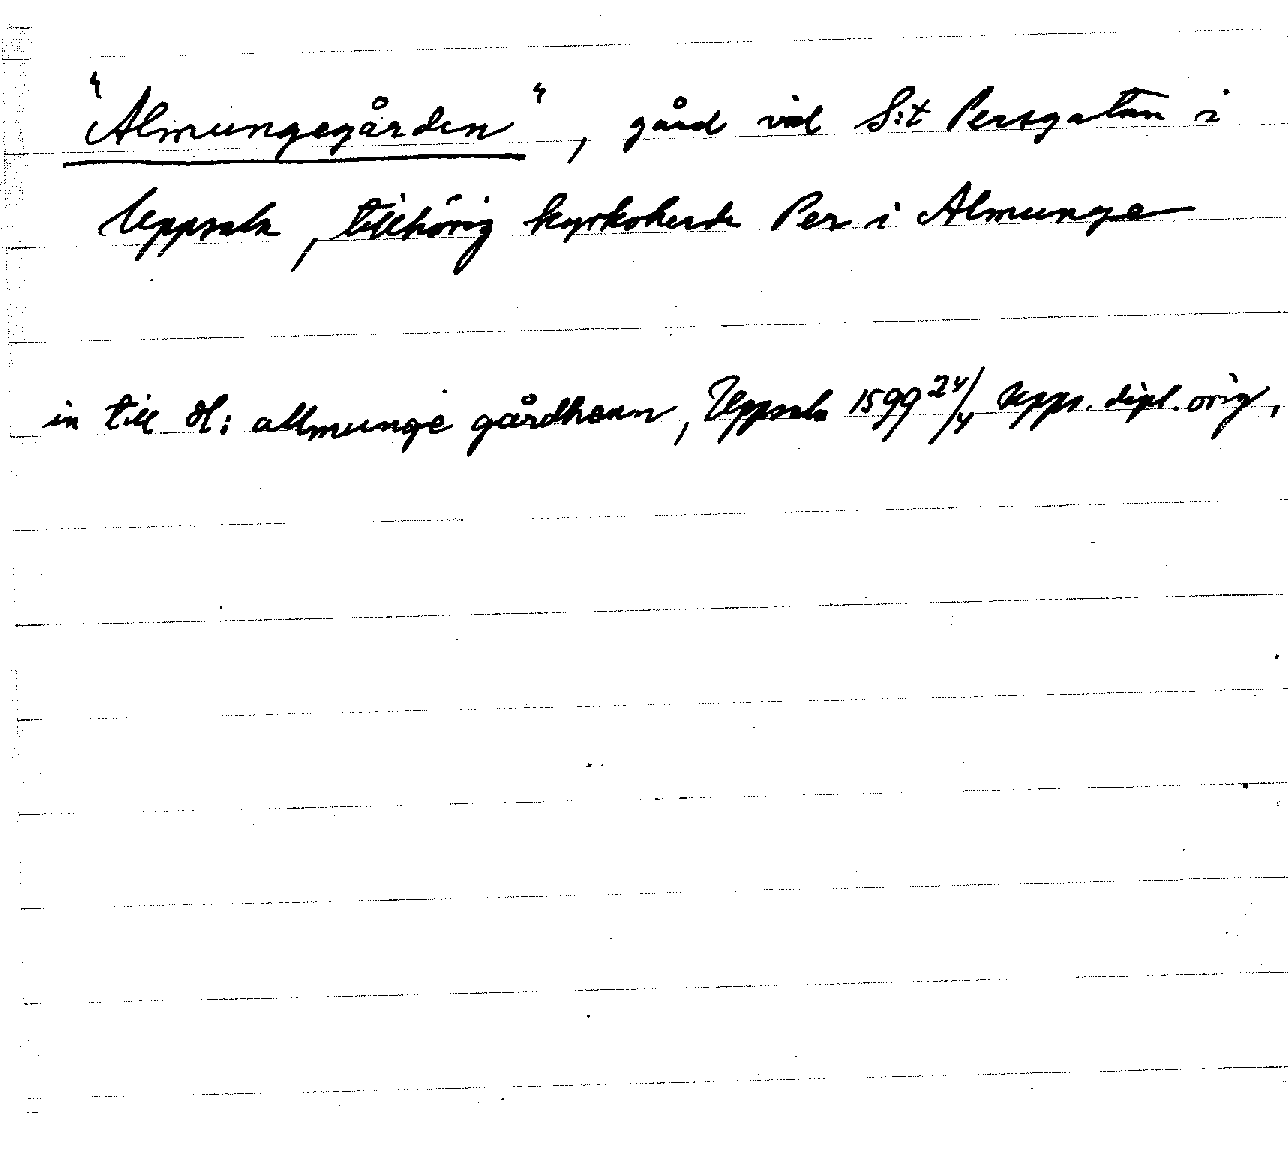 "Almungegården", gård vid S:t Persgatan i
Uppsala, tillhörig kyrkoherde Per i Almunge
in till H: allmunge gårdhenn, Uppsala 1599 24/4 Upps. dipl. orig.